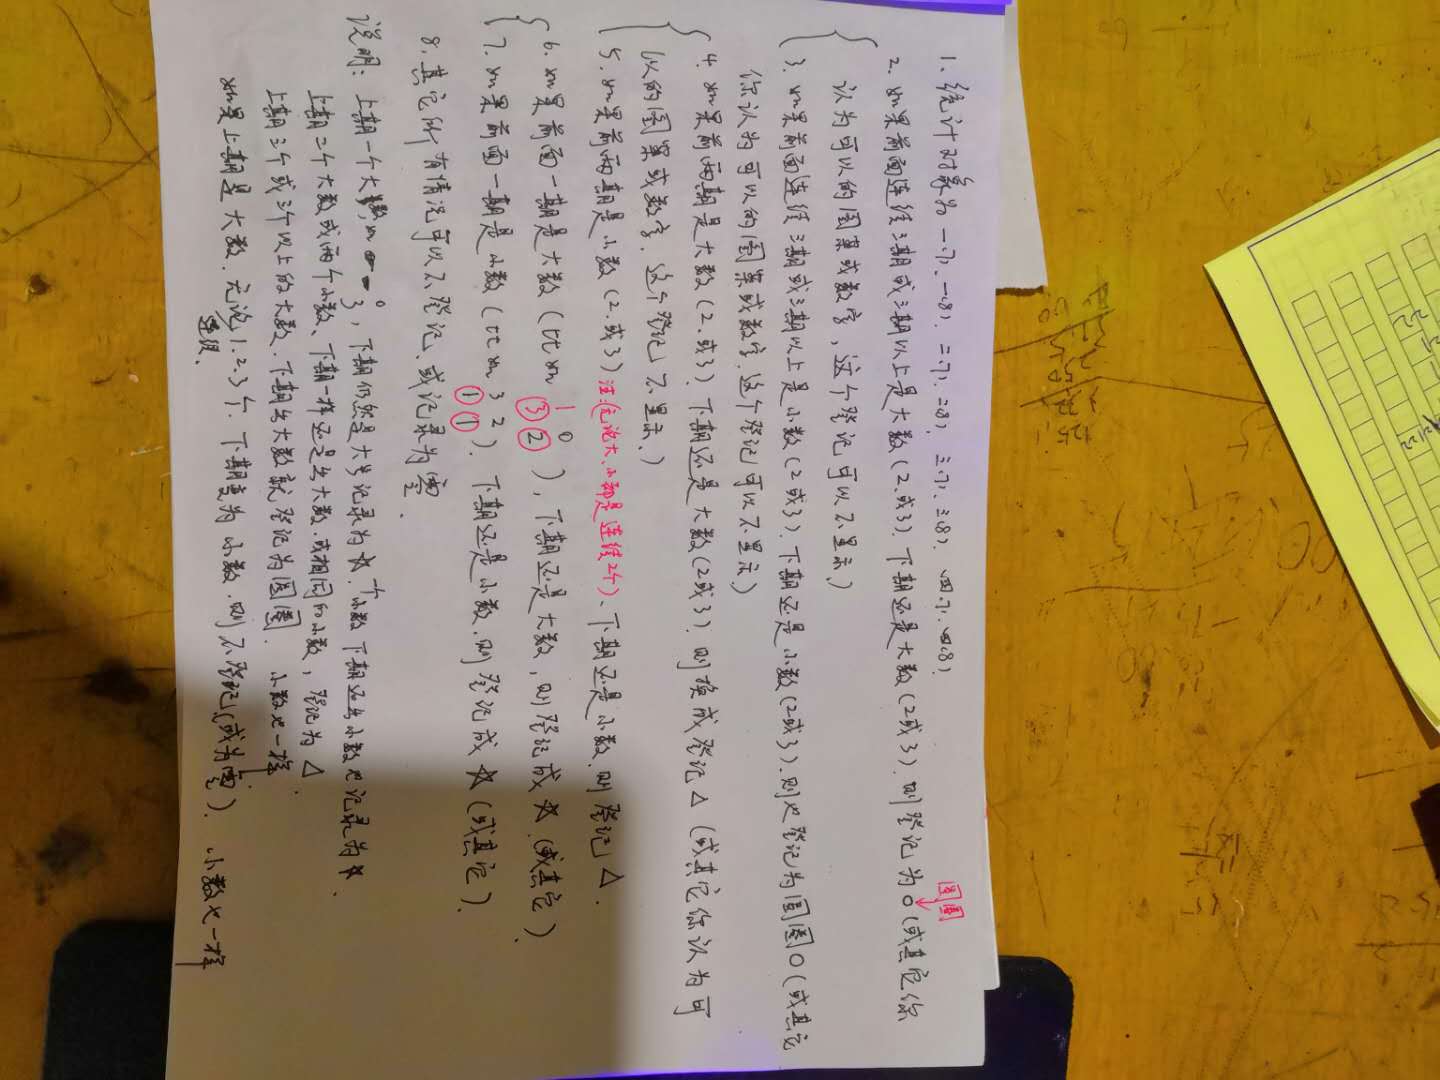 1.统计对象为一.7).一.8).二.7).二.8).三.7).三.8).四.7).四.8).
圆圈
2.如果前面连续三期或三期以上是大数(2.或3).下期还是大数(2或3).则登记为O(或其它你
认为可以的图案或数字,这个登记可以不显示)
3.如果前面连续三期或三期以上是小数(2或3).下期还是小数(2或3).则也登记为圆圈O(或其它
你认为可以的图案或数字.这个登记可以不显示)
4.如果前两期是大数(2.或3).下期还是大数(2或3).则换成登记△(或其它你认为可
以的图案或数字.这个登记不显示.)
5.如果前两期是小数(2.或3)注:(无论大.小都是连续2个).下期还是小数.则登记△.
6.如果前面一期是大数(比如 1 0 ③②),下期还是大数,则登记成☆.(或其它).
7.如果前面一期是小数(比如 3 2 ①①).下期还是小数.则登记成☆(或其它).
8.其它所有情况可以不登记.或记录为空.
说明:上期一个大数,如 0 3,下期仍然是大号记录为☆.一个小数下期还出小数也记录为☆.
上期二个大数或两个小数、下期一样还是出大数.或相同的小数,登记为△
上期三个或三个以上的大数.下期出大数就登记为圆圈. 小数也一样.
如果上期是大数.无论1.2.3个.下期变为小数.则不登记(或为空). 小数也一样
连组.